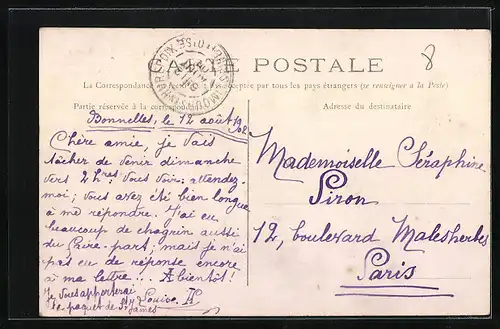 8
CARTE POSTALE
La Correspondance au recto n'est pas acceptée par tous les pays étrangers (se renseigner à la Poste)
Partie réservée à la correspondance
Adresse du destinataire
Bonnelles, le 12 août
Chère amie, je vais
tâcher de venir dimanche
vers 2 hres vous voir; attendez-
moi; vous avez été bien longue
à me répondre. J'ai eu
beaucoup de chagrin aussi
du Faire-part, mais je n'ai
pas eu de réponse encore
à ma lettre!.. A bientôt!
Je vous apporterai Louise. A
le paquet de St
James
Mademoiselle Séraphine
Piron
12, boulevard Malesherbes
Paris